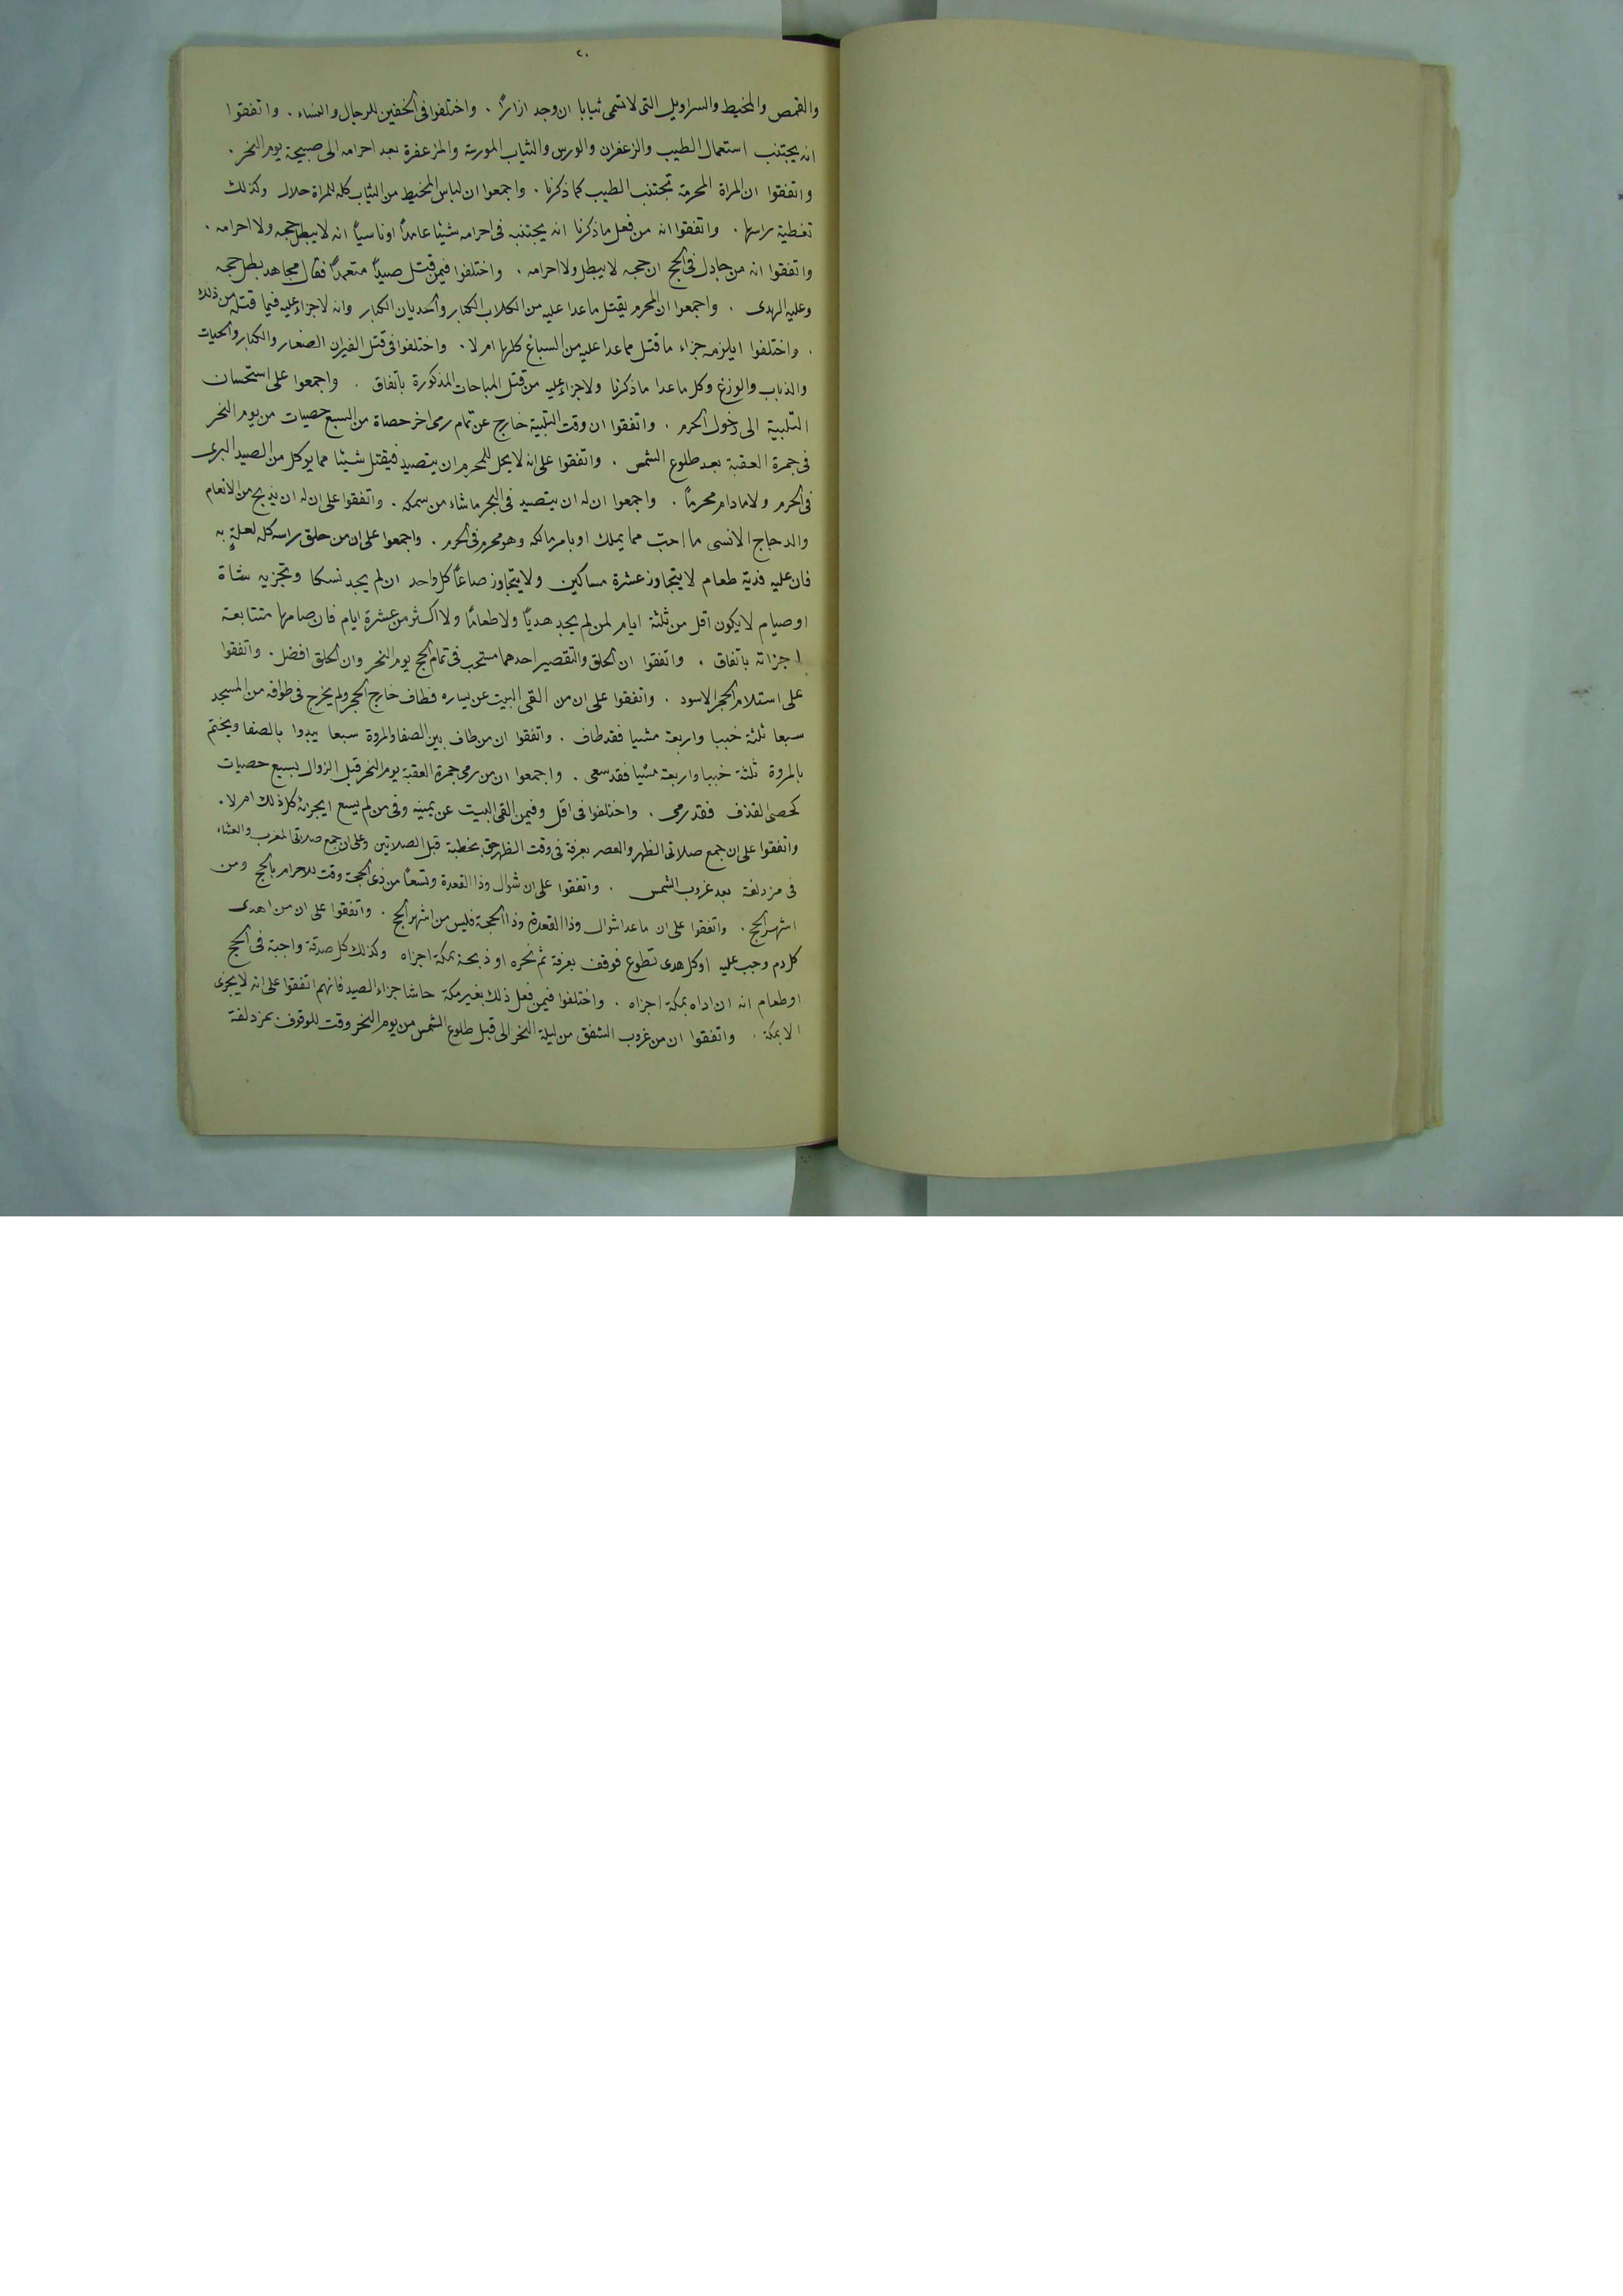 ٢٠
والقمص والمخيط والسراويل التى لا تسمى ثيابا ان وجد ازارًا . واختلفوا فى الخفين للرجال والنساء . واتفقوا
انه يجتنب استعمال الطيب والزعفران والورس والثياب المورسة والمزعفرة بعد احرامه الى صبيحة يوم النحر .
واتفقوا ان المراة المحرمة تجتنب الطيب كما ذكرنا . واجمعوا ان لباس المخيط من الثياب كله للمراة حلال وكذلك
تغطية راسها . واتفقوا انه من فعل ما ذكرنا انه يجتنبه فى احرامه شيئا عامدًا او ناسيًا انه لا يبطل حجه ولا احرامه .
واتفقوا انه من جادل فى الحج ان حجه لا يبطل ولا احرامه . واختلفوا فيمن قتل صيدًا متعمدًا فقال مجاهد بطل حجه
وعليه الهدى . واجمعوا ان المحرم يقتل ما عدا عليه من الكلاب الكبار والحديان الكبار وانه لا جزاء عليه فيما قتله من ذلك
. واختلفوا ايلزمه جزاء ما قتل مما عدا عليه من السباع كلها ام لا . واختلفوا فى قتل الفيران الصغار والكبار والحيات
والذباب والوزغ وكل ما عدا ما ذكرنا ولا جزاء عليه من قتل المباحات المذكورة باتفاق . واجمعوا على استحسان
التلبية الى دخول الحرم . واتفقوا ان وقت التلبية خارج عن تمام رمى اخر حصاة من السبع حصيات من يوم النحر
فى جمرة العقبة بعد طلوع الشمس . واتفقوا على انه لا يحل للمحرم ان يتصيد فيقتل شيئا مما يوكل من الصيد البرى
فى الحرم ولا ما دام محرمًا . واجمعوا ان له ان يتصيد فى البحر ما شاء من سمكه . واتفقوا على ان له ان يذبح من الانعام
والدجاج الانسى ما احبّ مما يملك او بامر مالكه وهو محرم وفى الحرم . واجمعوا على ان من حلق راسه كله لعلةٍ به
فان عليه فدية طعام لا يتجاوز عشرة مساكين ولا يتجاوز صاعًا كل واحد ان لم يجد نسكا وتجزيه شاة
او صيام لا يكون اقل من ثلثة ايام لمن لم يجد هديًا ولا طعامًا ولا اكثر من عشرة ايام فان صامها متتابعة
اجزاته باتفاق . واتفقوا ان الحلق والتقصير احدهما مستحب فى تمام الحج يوم النحر وان الحلق افضل . واتفقوا
على استلام الحجر الاسود . واتفقوا على ان من القى البيت عن يساره فطاف خارج الحجر ولم يخرج فى طوافه من المسجد
سبعا ثلثة خببا واربعة مشيا فقد طاف . واتفقوا ان من طاف بين الصفا والمروة سبعا يبدوا بالصفا ويختم
بالمروة ثلثة خببا واربعة مشيا فقد سعى . واجمعوا ان من رمى جمرة العقبة يوم النحر قبل الزوال بسبع حصيات
كحصى القذف فقد رمى . واختلفوا فى اقل وفيمن القى البيت عن يمينه وفى من لم يسع ايجزئه كل ذلك ام لا .
واتفقوا على ان جمع صلاتى الظهر والعصر بعرفة فى وقت الظهر حق بخطبة قبل الصلاتين وعلى ان جمع صلاتى المغرب والعشاء
فى مزدلفة بعد غروب الشمس . واتفقوا على ان شوال وذا القعدة وتسعًا من ذى الحجة وقت للاحرام بالحج ومن
اشهر الحج . واتفقوا على ان ما عدا شوال وذا القعدة وذا الحجة فليس من اشهر الحج . واتفقوا على ان من اهدى
كل دم وجب عليه او كل هدى تطوع فوقف بعرفة ثم نحره او ذبحه بمكة اجزاه وكذلك كل صدقة واجبة فى الحج
او طعام انه ان اداه بمكة اجزاه . واختلفوا فيمن فعل ذلك بغير مكة حاشا جزاء الصيد فانهم اتفقوا على انه لا يجزى
الا بمكة . واتفقوا ان من غروب الشفق من ليلة النحر الى قبل طلوع الشمس من يوم النحر وقت للوقوف بمزدلفة